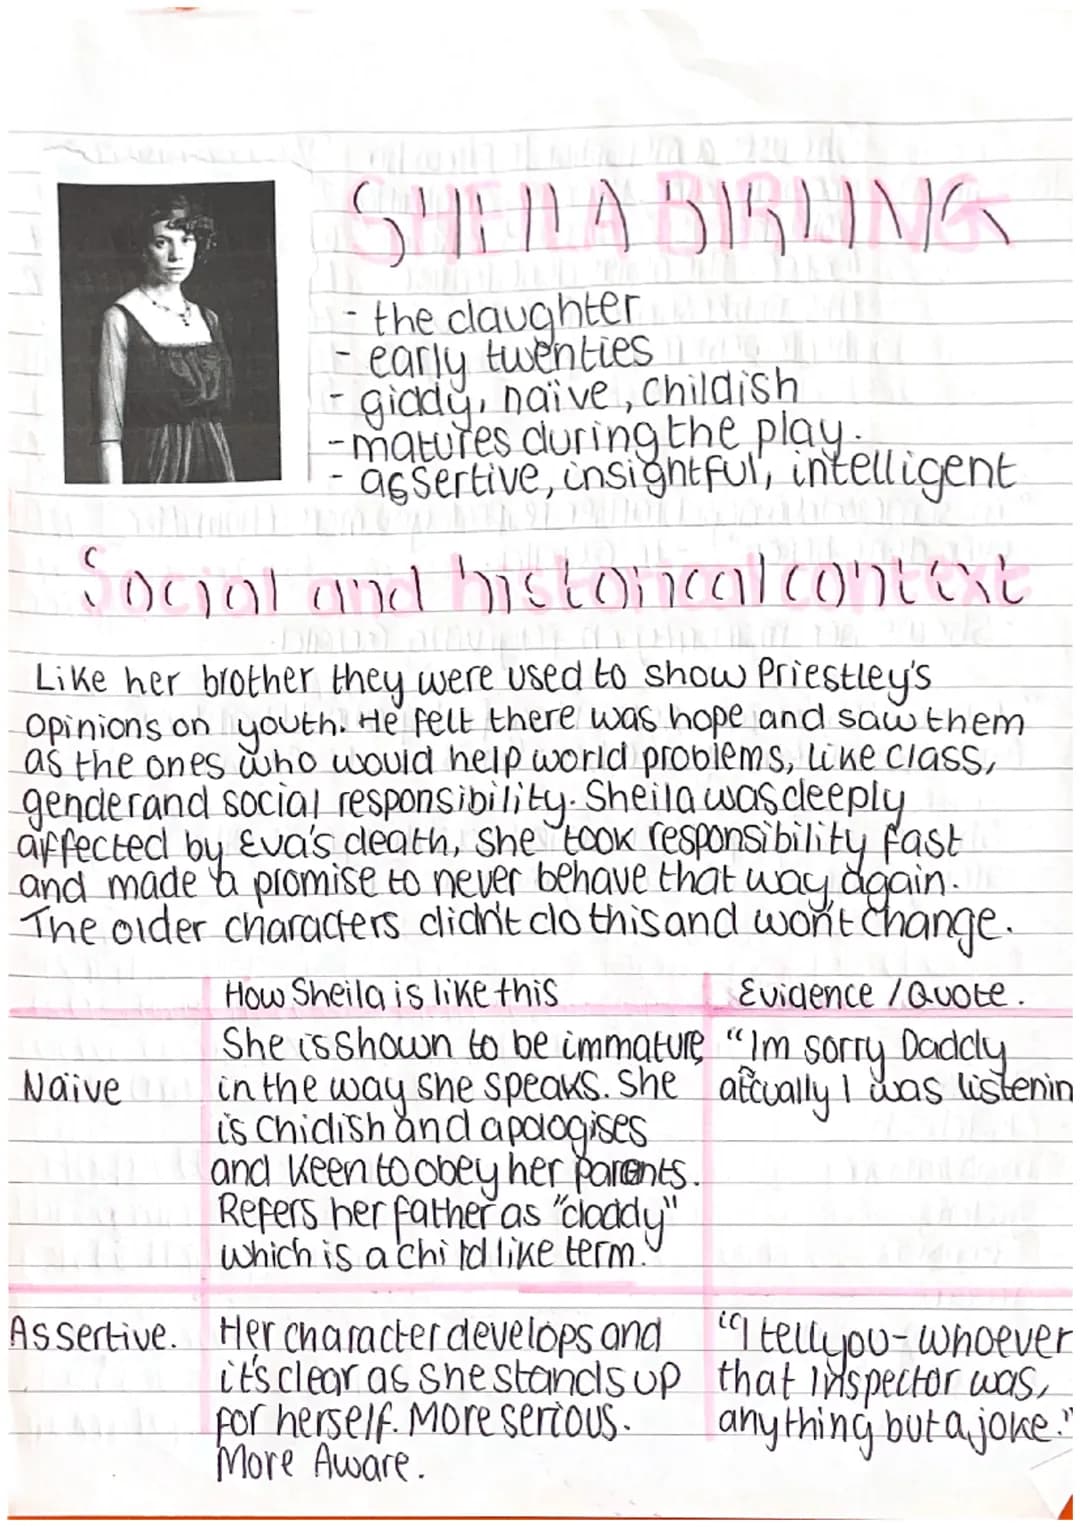 SHEILA BIRLING
- the daughter
- early twenties
- giddy, naïve, childish
- matures during the play.
- assertive, insightful, intelligent
Social and historical context
Like her brother they were used to show Priestley's
opinions on youth. He felt there was hope and saw them
as the ones who would help world problems, like class,
gender and social responsibility. Sheila was deeply
affected by Eva's death, she took responsibility fast
and made a promise to never behave that way again.
The older characters didn't do this and won't change.
How Sheila is like this
Evidence / Quote.
Naïve
She is shown to be immature
in the way she speaks. She
is chidish and apologises
and keen to obey her parents.
Refers her father as "daddy"
which is a child like term.
"Im sorry Daddy
actually I was listenin
Assertive.
Her character develops and
it's clear as she stands up
for herself. More serious.
More Aware.
"I tell you - whoever
that Inspector was,
anything but a joke."